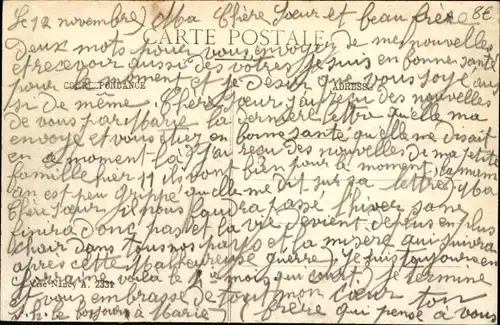 8€
le 12 novembre) Ma Chère Sœur et beau frère
CARTE POSTALE
Deux mots pour vous envoyer de mes nouvelles
et recevoir aussi des votres je suis en bonne santé
pour le moment et je desir que vous soyé au
CORRESPONDANCE
ADRESSE
si de même. Chère Sœur j'ai reçu des nouvelles
de vous par Marie la dernière lettre quelle ma
envoyé et vous étiez en bonne santé quelle me disait
en ce moment la J'ai reçu des nouvelles de ma petite
famille hier 11 ils vont bien pour le moment la mam
an est peu grippé quelle me dit sur sa lettre) Ma
Chère Sœur il nous faudra passé l'hiver sans
finira donc pas et la vie devient de plus en plus
chair dans tous nos pays et la misère qui suivra
après cette Malheureuse guerre) je suis toujours en
voila le mois qui court) je termine
Nancy A. 2331
et vous embrasse de tout mon cœur ton
le bonjour à Marie) frère qui pense à vous